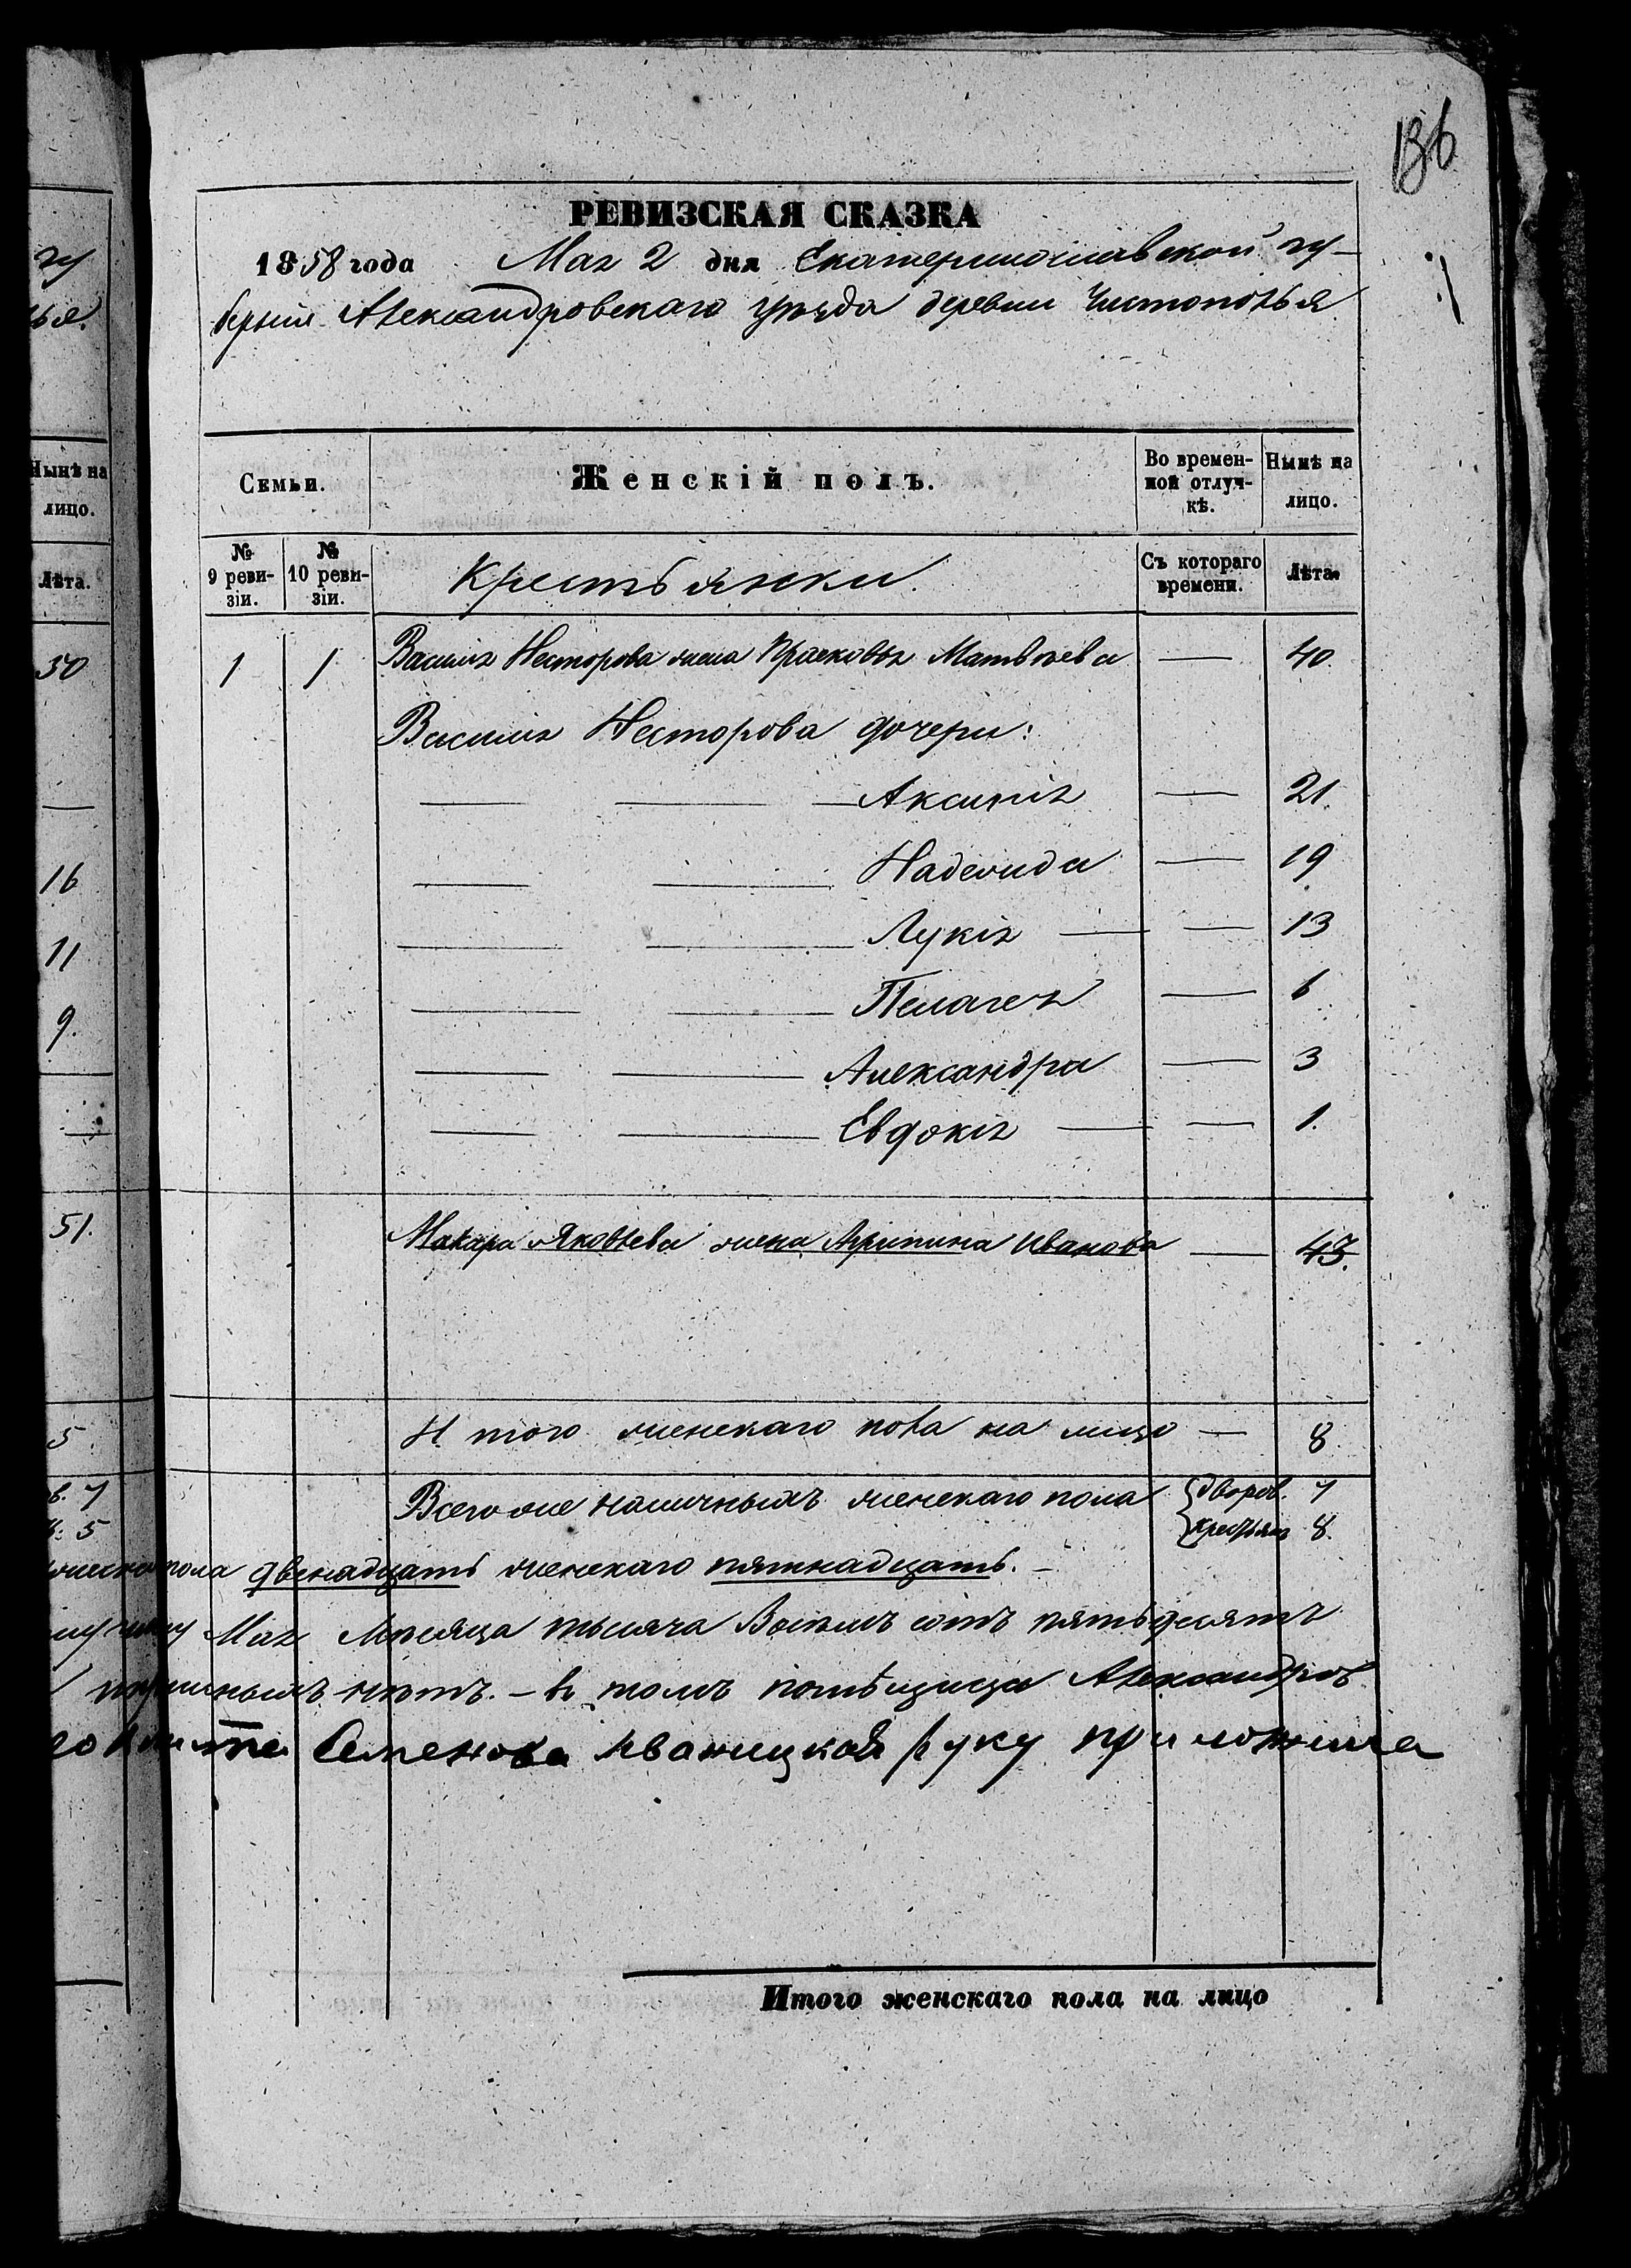 136
РЕВИЗСКАЯ СКАЗКА
1858 года Мая 2 дня Екатеринославской гу-
берніи Александровскаго уѣзда деревни Чистополья
Семьи.
Женскій полъ.
Во времен-
ной отлуч-
кѣ.
Нынѣ на
лицо.
№
9 реви-
зіи.
№
10 реви-
зіи.
Крестьянки.
Съ котораго
времени.
Лѣта.
1 1 Василія Нестерова жена Прасковья Матвѣева — 40.
Василія Нестерова дочери:
— — Аксинія — 21.
— — Надежда — 19
— — Лукія — — 13
— — Пелагея — 6
— — Александра — 3
— — Евдокія — — 1.
Макара Яковлева жена Агрипина Иванова — 43.
Итого женскаго пола на лицо — 8.
Всего же наличныхъ женскаго пола
дворов. 7
крестьян 8.
пола двенадцать женскаго пятнадцать. —
Мая Мѣсяца тысяча Восемь сотъ пятьдесятъ
нѣтъ. — въ томъ помѣщица Александров
Семенова Иваницкая руку приложила
Итого женскаго пола на лицо
гу
ья.
Нынѣ на
лицо.
Лѣта.
50
16
11
9.
51.
5.
в. 7
5